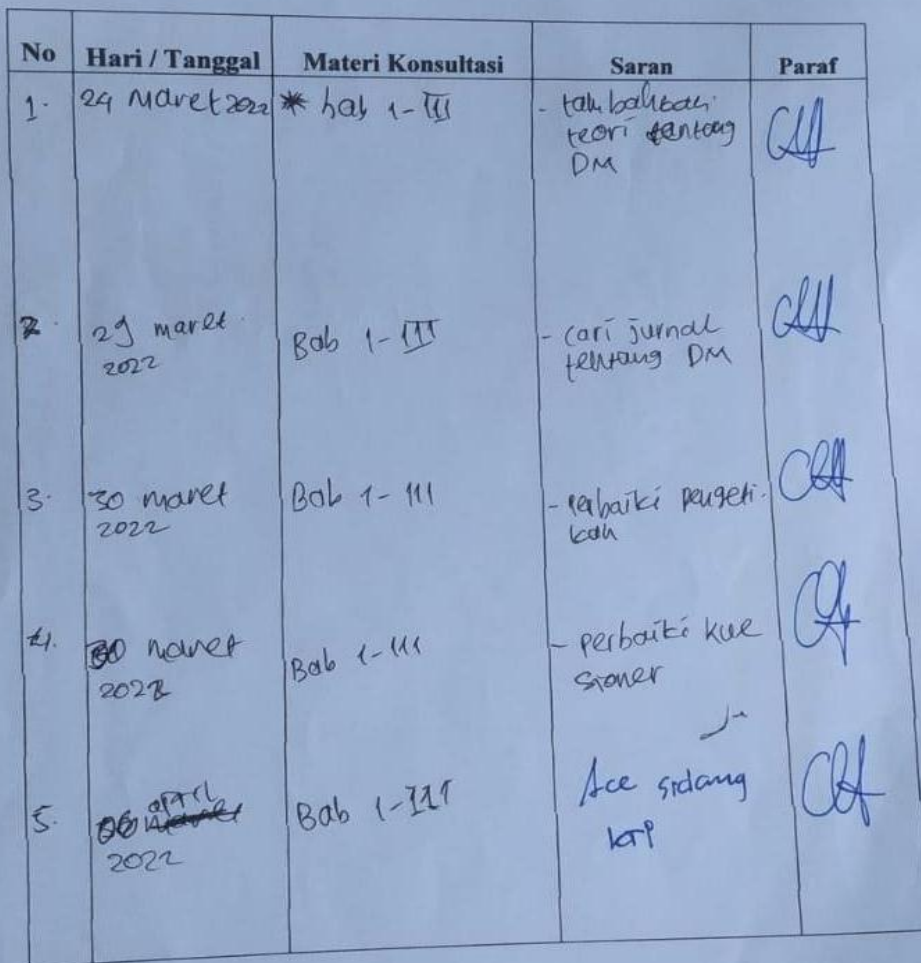 No Hari / Tanggal Materi Konsultasi Saran Paraf
1. 24 Maret 2022 * bab 1-III - tambahkan
teori tentang
DM
2. 29 maret Bab 1-III - cari jurnal
2022 tentang DM
3. 30 maret Bab 1-111 - perbaiki pengeti-
2022 kan
4. 30 maret Bab 1-111 - perbaiki kue
2022 sioner
5. 06 april Bab 1-III Acc sidang
2022 KTI